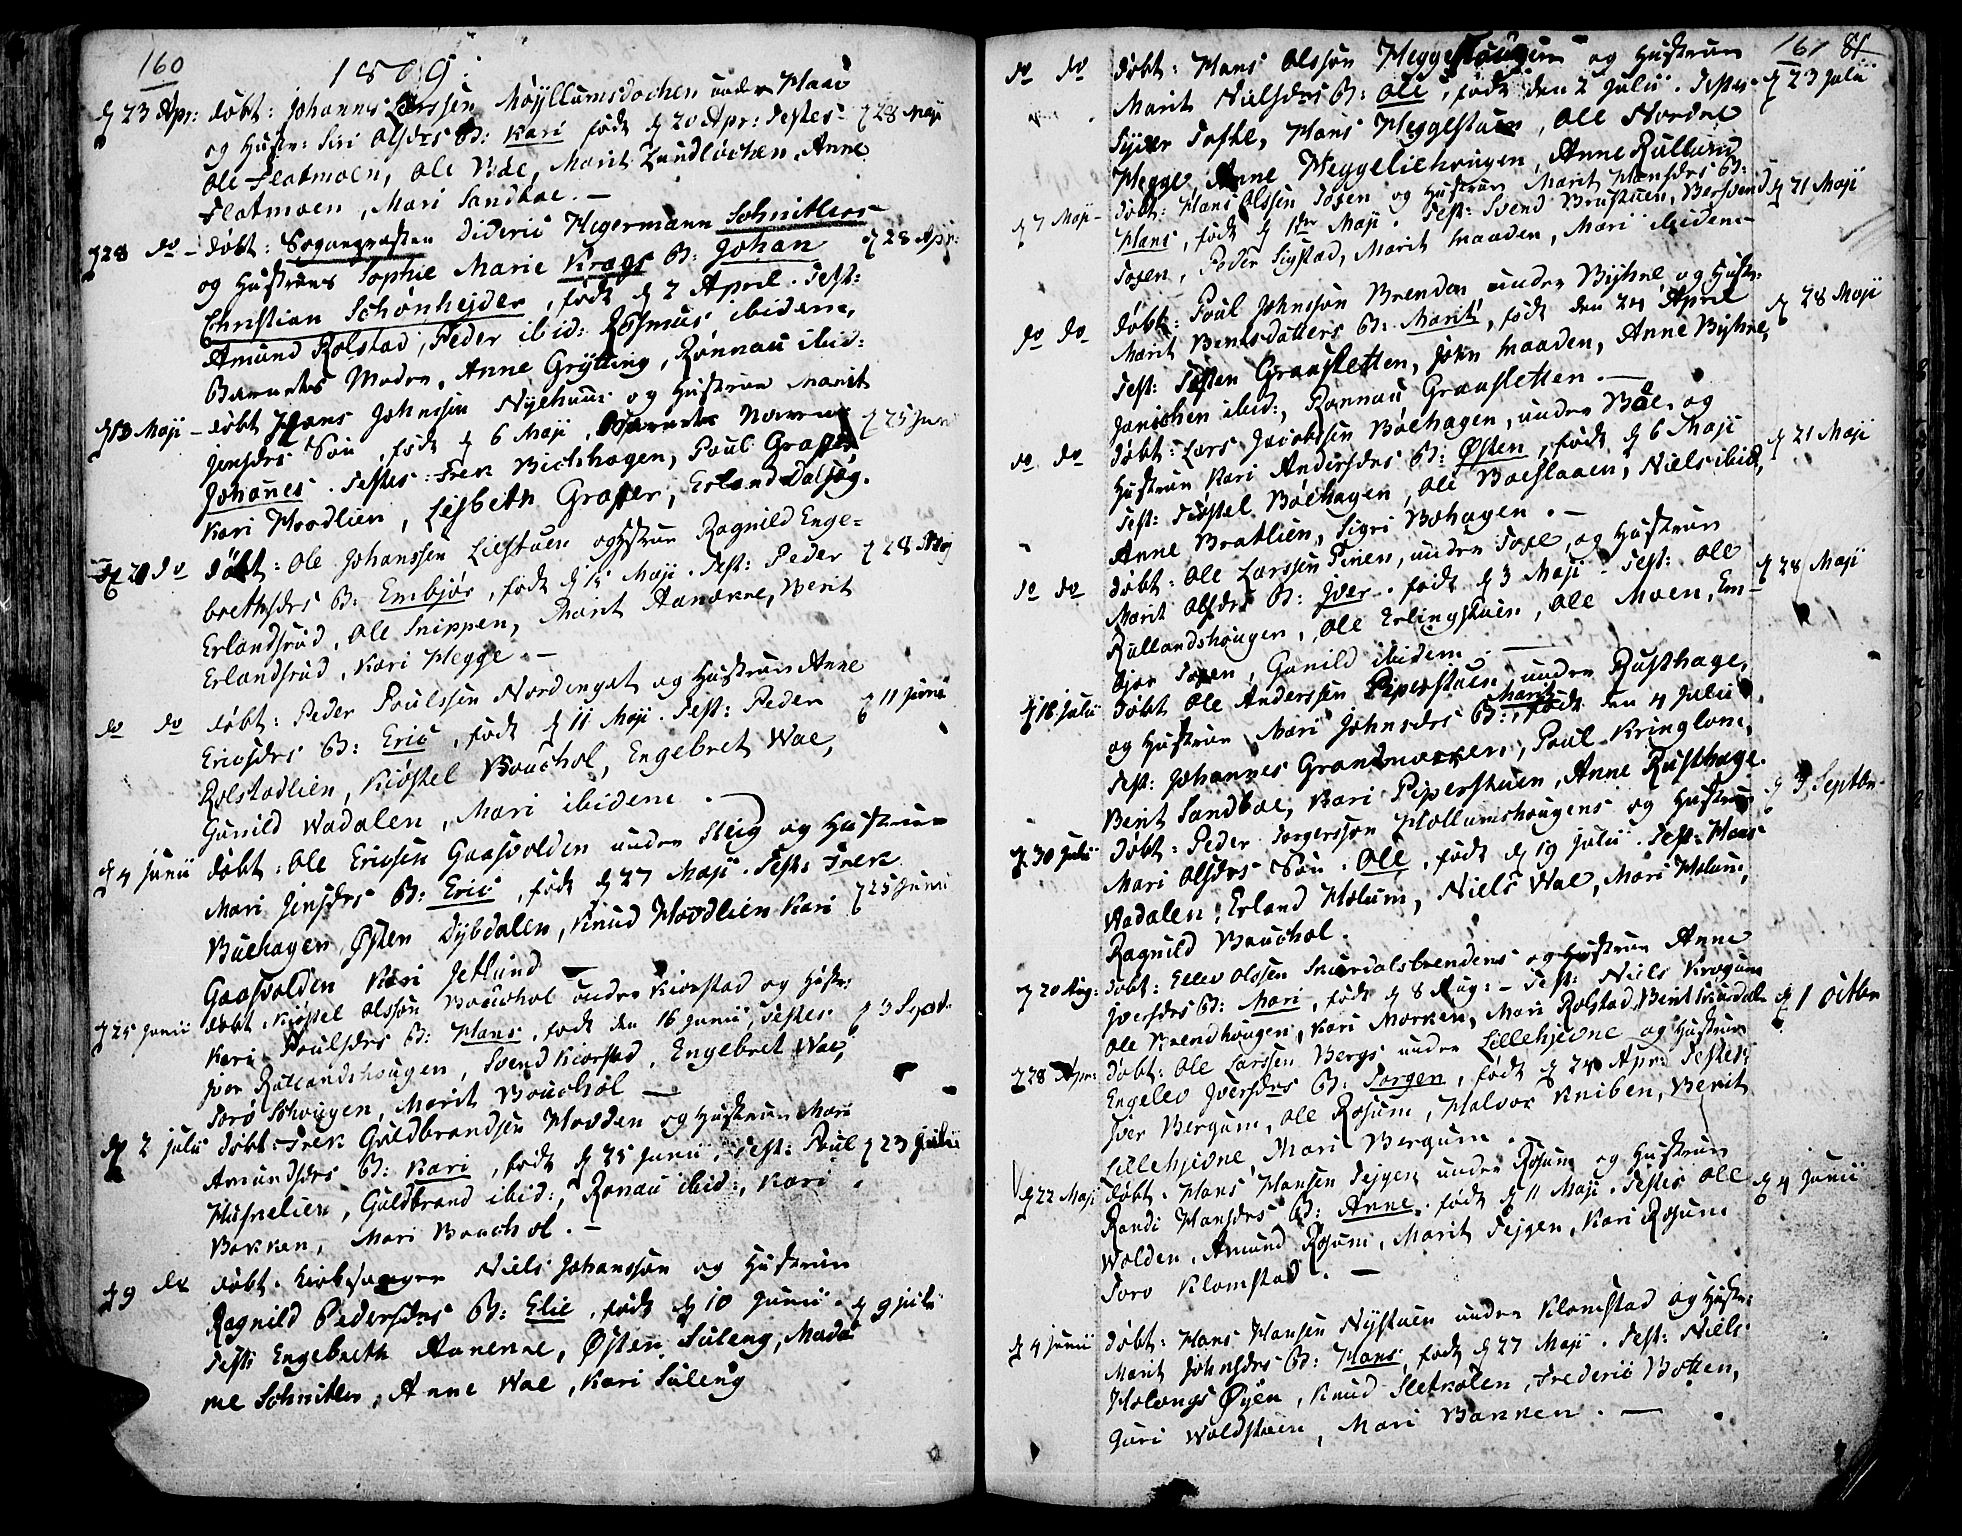 160
1809.
d 23 Apr: døbt: Johannes Larssen Møyllumsdochen under Plaae
og Hustr: Siri Olsdrs B: Kari født d 20 Apr: Testes: d 28 Maji
Ole Flatmoen, Ole Bøe, Marit Lundlochen, Anne
Flatmoen, Mari Sandboe. —
d 28 do — døbt: Sogneprästen Dideric Hegermann Schnitlers d 28 Apr:
og Hustrues Sophie Marie Krags B: Johan
Christian Schønhejder, født d 2 April. Test:
Amund Rolstad, Peder ibid: Rasmus ibidem,
Barnets Moder, Anne Grytting, Rønnau ibid:
d 13 Maji — døbt Hans Johnssen Nyehuus og Hustrue Marit
Jensdrs Søn, født d 6 Maji, Barnets Navn d 25 Juni
Johanes. Testes: Frek Bichhagen, Poul Graffer,
Kari Hovdlien, Lisbeth Graffer, Erland Dalseg.
d 21 do døbt: Ole Johanssen Liestuen og Hstrue Ragnild Enge=
brethsdrs B: Embjør, født d 15 Maji. Test: Peder d 28 Maj
Erlandsrud, Ole Snippen, Marit Aanekne, Berit
Erlandsrud, Kari Hegge. —
do do døbt: Peder Poulssen Nordengat og Hustrue Anne
Ericsdrs B: Eric, født d 11 Maji. Test: Peder d 11 Junii
Rolstadlien, Kiøstel Bouchol, Engebret Wae,
Gunild Wadalen, Mari ibidem. —
d 4 Junii døbt: Ole Ericsen Gaasvolden under Steig og Hustrue
Mari Jensdrs B: Eric, født d 27 Maji. Test: Frek
Buehagen, Østen Dybdalen, Knud Hovdlien Kari d 25 Junii
Gaasvolden Kari Jetlund —
d 25 Junii døbt: Kiøstel Olssøn Bouchol under Kiorstad og Hustr:
Kari Poulsdrs B: Hans, født den 16 Junii, Testes. d 3 Sept.
Iver Rullandshougen, Svend Kiorstad, Engebret Wae,
Toro Schougen, Marit Bouchol —
d 2 Julii døbt: Frek Guldbrandsen Hovden og Hustrue Mari
Amundsdrs B: Kari, født d 25 Junii, Test: Poul d 23 Julii
Husnelien, Guldbrand ibid:, Ronau ibid:, Kari
Bakken, Mari Bouchol. —
d 9 do døbt. Kirkesanger Niels Johanssøn og Hustrue
Ragnild Pedersdrs B: Elie, født d 10 Junii. d 9 Julii
Test: Engebreth Aanekne, Østen Suleng, Mada
me Schnitler, Anne Wae, Kari Suleng
161 81
do do døbt: Hans Olssøn Heggestougen og Hustrue
Marit Nielsdrs B: Ole, født den 2 Julii. Testes d 23 Julii
Syver Tofte, Hans Heggestuen, Ole Nordre
Hegge, Anne Heggeliehougen, Anne Rullund
d 7 Maji — døbt: Hans Olssen Toxen og Hustrue Marit Hansdrs B:
Hans, født d 1ste Maji. Test: Svend Brustuen, Bersvend d 21 Maji
Toxen, Peder Sygstad, Marit Maaden, Mari ibidem —
do do døbt: Poul Johnssøn Brenden under Byhre og Hustr:
Marit Bentsdatters B: Marit, født den 24 April d 28 Maji
Test: Testen Graasletten, John Maaden, Anne Byhre,
Janichen ibid:, Rønnau Graasletten. —
do do døbt: Lars Jacobssøn Bøehagen, under Bøe, og
Hustrue Kari Andersdrs B: Østen, født d 6 Maji d 21 Maji
Test: Kiøstel Bøehagen, Ole Boeslaaen, Niels ibid:,
Anne Bratlien, Sigri Bøhagen. —
do do døbt: Ole Larssen Pinen, under Toxe, og Hustrue
Marit Olsdrs B: Iver. født d 3 Maji. Test: Ole d 28 Maji
Rullandshougen, Ole Erlingstuen, Ole Moen, Em-
bjør Toxen, Gunild ibidem. —
d 16 Julii døbt Ole Anderssen Piperstuen under Rusthage,
og Hustrue Mari Johnsdrs B: Marit, født den 4 Julii
Test: Johannes Grandmoreken, Poul Kringlom,
Berit Sandboe, Kari Piperstuen, Anne Rusthage.
d 30 Julii døbt: Peder Torgerssøn Hollumshougens og Hustrue d 3 Septbr.
Mari Olsdrs Søn: Ole, født d 19 Julii. Test: Hans
Aadalen, Erland Holum, Niels Wae, Mari Holum,
Ragnild Bouchol.
d 20 Aug: døbt: Ellev Olssen Snurdalsbrendens og Hustrue Anne
Iversdrs B: Mari, født d 8 Aug: — Test: Niels Krogum
Ole Krendhougen, Kari Morken, Mari Rolstad, Berit Snurdalen d 1 Octbr
d 28 Apr: døbt: Ole Larssen Bergs under Lillehjevne og Hustrue
Engelev Iversdrs B: Torgen, født d 24 Apr: Testes:
Iver Bergum, Ole Rosum, Halvor Kniben, Berit
Lillehjevne, Mari Bergum.
d 22 Maji døbt. Hans Hansen Tejgen under Rosum og Hustrue
Randi Hansdrs B: Anne. født d 11 Maji. Testes Ole d 4 Junii
Wolden, Amund Rosum, Marit Tejgen, Kari Rosum
Toro Klomstad. —
d 4 Junii døbt: Hans Hansen Nystuen under Klomstad og Hustr:
Marit Johnsdrs B: Hans, født d 27 Maji. Test: Niels
Holongs Øyen, Knud Sletkolen, Frederic Botten,
Guri Woldstuen, Mari Bakken. —